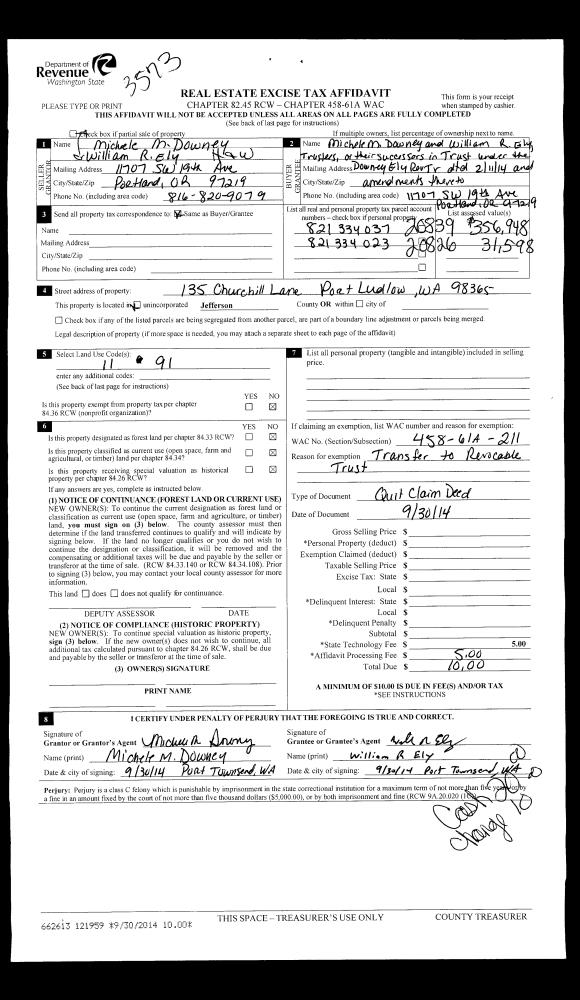 Department of
Revenue
Washington State
3573
PLEASE TYPE OR PRINT
REAL ESTATE EXCISE TAX AFFIDAVIT
CHAPTER 82.45 RCW – CHAPTER 458-61A WAC
This form is your receipt
when stamped by cashier.
THIS AFFIDAVIT WILL NOT BE ACCEPTED UNLESS ALL AREAS ON ALL PAGES ARE FULLY COMPLETED
(See back of last page for instructions)
Check box if partial sale of property
If multiple owners, list percentage of ownership next to name.
1 Name Michele M. Downey
& William R. Ely H & W
SELLER GRANTOR
Mailing Address 11707 SW 19th Ave
City/State/Zip Portland, OR 97219
Phone No. (including area code) 816-820-9079
2 Name Michele M. Downey and William R. Ely
Trustees, or their successors in Trust under the
BUYER GRANTEE
Mailing Address Downey Ely Rev Tr dtd 2/1/14 and
City/State/Zip amendments thereto
Phone No. (including area code) 11707 SW 19th Ave
Portland, OR 97219
3 Send all property tax correspondence to: Same as Buyer/Grantee
Name
Mailing Address
City/State/Zip
Phone No. (including area code)
List all real and personal property tax parcel account
numbers – check box if personal property
List assessed value(s)
821 334 037 26839 $356,948
821 334 023 26826 31,598
4 Street address of property: 135 Churchill Lane Port Ludlow, WA 98365
This property is located in unincorporated Jefferson County OR within city of
Check box if any of the listed parcels are being segregated from another parcel, are part of a boundary line adjustment or parcels being merged.
Legal description of property (if more space is needed, you may attach a separate sheet to each page of the affidavit)
5 Select Land Use Code(s):
11 91
enter any additional codes:
(See back of last page for instructions)
YES NO
Is this property exempt from property tax per chapter
84.36 RCW (nonprofit organization)?
6 YES NO
Is this property designated as forest land per chapter 84.33 RCW?
Is this property classified as current use (open space, farm and
agricultural, or timber) land per chapter 84.34?
Is this property receiving special valuation as historical
property per chapter 84.26 RCW?
If any answers are yes, complete as instructed below.
(1) NOTICE OF CONTINUANCE (FOREST LAND OR CURRENT USE)
NEW OWNER(S): To continue the current designation as forest land or
classification as current use (open space, farm and agriculture, or timber)
land, you must sign on (3) below. The county assessor must then
determine if the land transferred continues to qualify and will indicate by
signing below. If the land no longer qualifies or you do not wish to
continue the designation or classification, it will be removed and the
compensating or additional taxes will be due and payable by the seller or
transferor at the time of sale. (RCW 84.33.140 or RCW 84.34.108). Prior
to signing (3) below, you may contact your local county assessor for more
information.
This land does does not qualify for continuance.
DEPUTY ASSESSOR DATE
(2) NOTICE OF COMPLIANCE (HISTORIC PROPERTY)
NEW OWNER(S): To continue special valuation as historic property,
sign (3) below. If the new owner(s) does not wish to continue, all
additional tax calculated pursuant to chapter 84.26 RCW, shall be due
and payable by the seller or transferor at the time of sale.
(3) OWNER(S) SIGNATURE
PRINT NAME
7 List all personal property (tangible and intangible) included in selling
price.
If claiming an exemption, list WAC number and reason for exemption:
WAC No. (Section/Subsection) 458-61A-211
Reason for exemption Transfer to Revocable
Trust
Type of Document Quit Claim Deed
Date of Document 9/30/14
Gross Selling Price $
*Personal Property (deduct) $
Exemption Claimed (deduct) $
Taxable Selling Price $
Excise Tax: State $
Local $
*Delinquent Interest: State $
Local $
*Delinquent Penalty $
Subtotal $
*State Technology Fee $ 5.00
*Affidavit Processing Fee $ 5.00
Total Due $ 10.00
A MINIMUM OF $10.00 IS DUE IN FEE(S) AND/OR TAX
*SEE INSTRUCTIONS
8 I CERTIFY UNDER PENALTY OF PERJURY THAT THE FOREGOING IS TRUE AND CORRECT.
Signature of
Grantor or Grantor's Agent
Name (print) Michele M. Downey
Date & city of signing: 9/30/14 Port Townsend, WA
Signature of
Grantee or Grantee's Agent
Name (print) William R Ely
Date & city of signing: 9/30/14 Port Townsend, WA
Perjury: Perjury is a class C felony which is punishable by imprisonment in the state correctional institution for a maximum term of not more than five years, or by
a fine in an amount fixed by the court of not more than five thousand dollars ($5,000.00), or by both imprisonment and fine (RCW 9A.20.020
Cash 20
change 10
662613 121959 *9/30/2014 10.00*
THIS SPACE – TREASURER'S USE ONLY
COUNTY TREASURER